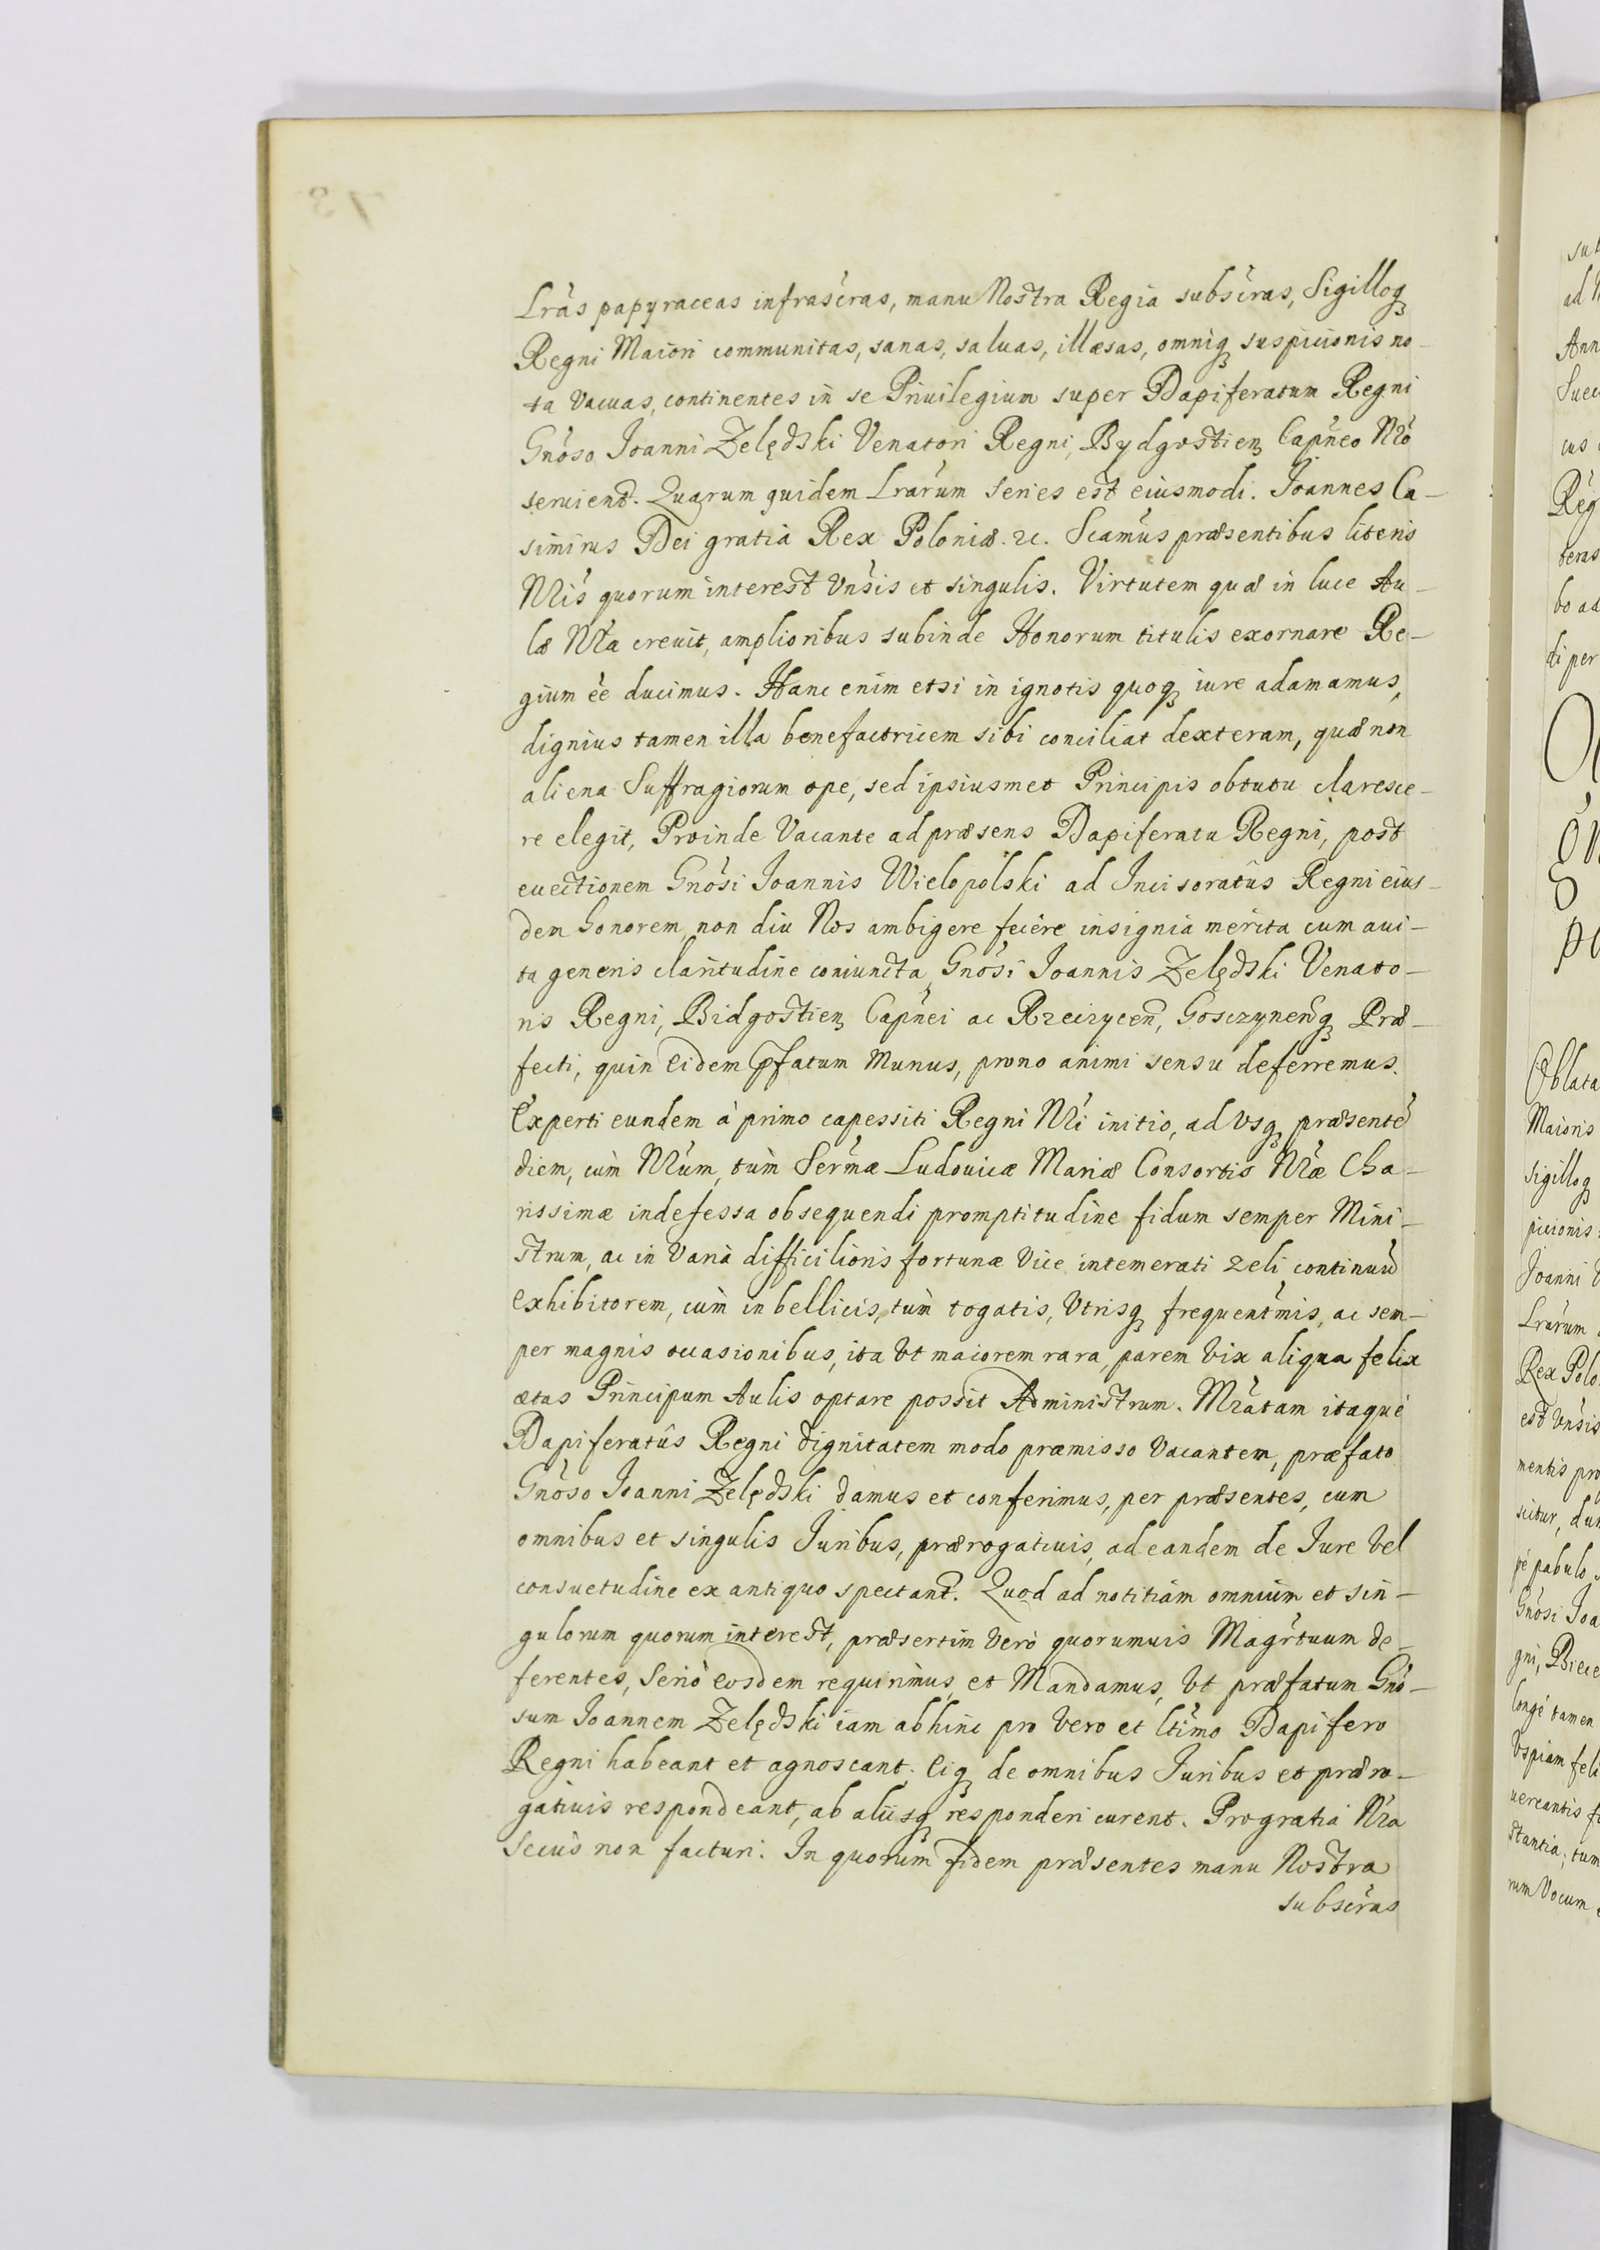 Lras papyraceas infrascras, manu Nostra Regia subscras, Sigilloq
Regni Maiori communitas, sanas, saluas, illæsas, omniq suspicionis no-
ta vacuas, continentes in se Priuilegium super Dapiferatum Regni
Gnoso Ioanni Zelędzki Venatori Regni, Bydgostien Capneo Nro
seruiend. Quarum quidem Lrarum series est eiusmodi. Joannes Ca-
simirus Dei gratia Rex Poloniæ. &c. Scamus præsentibus literis
Nris quorum interest vnsis et singulis. Virtutem quæ in luce Au-
læ Nra creuit, amplioribus subinde Honorum titulis exornare Re-
gium ee ducimus. Hanc enim etsi in ignotis quoq iure adamamus,
dignius tamen illa benefactricem sibi conciliat dexteram, quæ non
aliena Suffragiorum ope, sed ipsiusmet Principis obtutu claresce-
re elegit, Proinde Vacante ad præsens Dapiferatu Regni, post
euectionem Gnosi Joannis Wielopolski ad Incisoratûs Regni eius-
dem honorem, non diu Nos ambigere fecere insignia merita cum aui-
ta generis claritudine coniuncta Gnosi Joannis Zelędzki Venato-
ris Regni, Bidgostien Capnei ac Rzeczycen, Gosczynenq Præ-
fecti, quin eidem pfatum munus, prono animi sensu deferremus.
Experti eundem à primo capessiti Regni Nri initio, ad vsq præsente
diem, cùm Nrum, tùm Serma Ludouicæ Mariæ Consortis Nræ Cha-
rissimæ indefessa obsequendi promptitudine fidum semper Mini-
strum, ac in varià difficilioris fortunæ vice intemerati zeli continuu
exhibitorem, cùm in bellicis, tùm togatis, vtrisq frequentmis, ac sem-
per magnis occasionibus, ita vt maiorem rara, parem vix aliqua felix
ætas Principum Aulis optare possit Administrum. Mratam itaque
Dapiferatûs Regni dignitatem modo præmisso vacantem, præfato
Gnoso Ioanni Zelędzki damus et conferimus, per præsentes, cum
omnibus et singulis Juribus, prærogatiuis, ad eandem de Jure vel
consuetudine ex antiquo spectant. Quod ad notitiam omnium et sin-
gulorum quorum interest, præsertim verò quorumuis Magrtuum de-
ferentes, seriò eosdem requirimus, et Mandamus, vt præfatum Gno-
sum Joannem Zelędzki iam abhinc pro vero et ltimo Dapifero
Regni habeant et agnoscant. Eiq de omnibus Juribus et præro-
gatiuis respondeant, ab aliisq responderi curent. Pro gratia Nra
secus non facturi. In quorum fidem præsentes manu Nostra
subscras